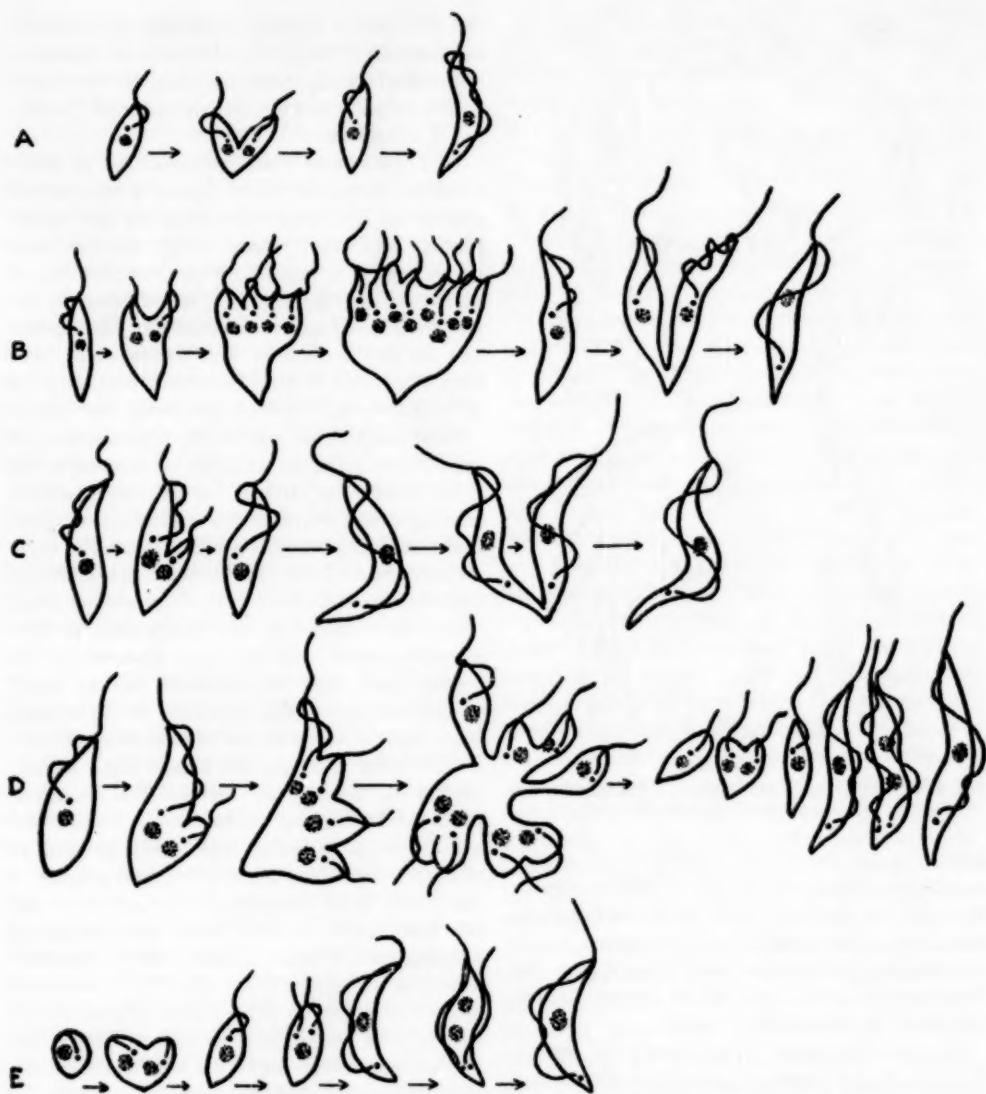 A
B
C
D
E